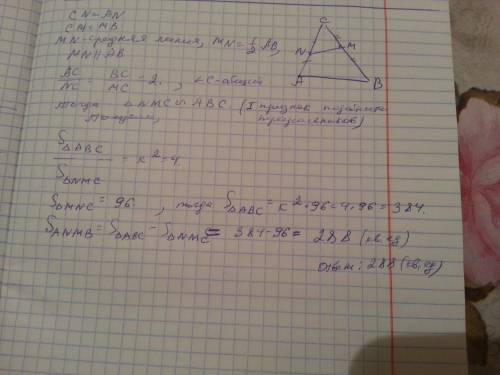 CN = AN
CM = MB
MN - средняя линия, MN = 1/2 AB,
MN || AB
AC/NC = BC/MC = 2. , ∠C - общий
тогда △NMC ∽ ABC (I признак подобия
треугольников)
S△ABC / S△NMC = k² = 4
S△MNC = 96 , тогда S△ABC = k² · 96 = 4 · 96 = 384.
SANMB = S△ABC - S△NMC = 384 - 96 = 288 (кв. ед)
Ответ: 288 (кв. ед)
C
N
M
A
B